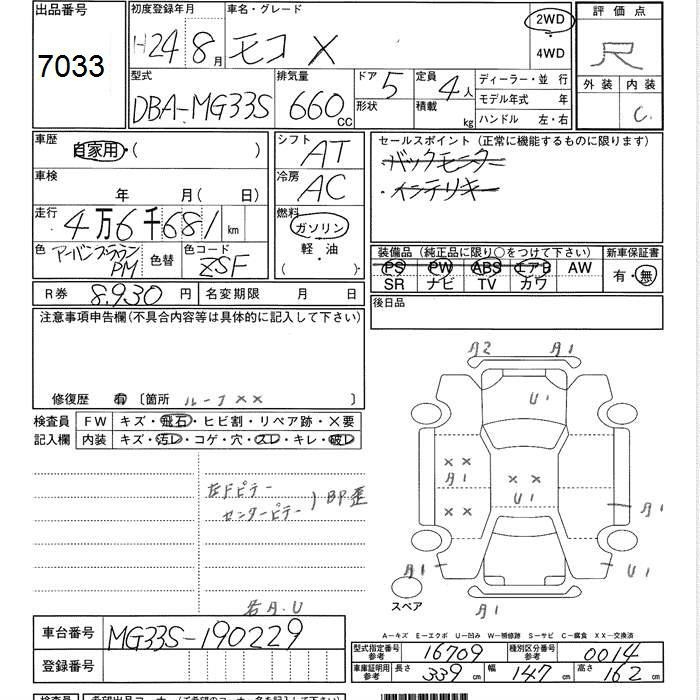 出品番号 7033
初度登録年月 H24年8月
車名・グレード モコ X
2WD
4WD
評価点 R
外装 内装 C
型式 DBA-MG33S
排気量 660 CC
ドア 5
形状
定員 4人
積載 kg
ディーラー・並行
モデル年式 年
ハンドル 左・右
車歴 自家用・( )
車検 年 月( 日)
走行 4万6千681 km
色 アーバンブラウンPM
色替
色コード ZSF
シフト AT
冷房 AC
燃料 ガソリン
軽・油
( )
セールスポイント(正常に機能するものに限ります)
・バックモニター
・インテリキー
装備品(純正品に限り○をつけて下さい)
PS PW ABS エアB AW
SR ナビ TV カワ
新車保証書
有・無
R券 8,930円
名変期限 月 日
後日品
注意事項申告欄(不具合内容等は具体的に記入して下さい)
修復歴 有 〔箇所 ルーフ××〕
検査員記入欄
FW キズ・飛石・ヒビ割・リペア跡・×要
内装 キズ・汚レ・コゲ・穴・スレ・キレ・破レ
左Fピラー
センターピラー ) BP歪
右A.U
A2 A1
U1
×× A1
××
×× U1
A1
A1 U1
A1
スペア
A―キズ E―エクボ U―凹み W―補修跡 S―サビ C―腐食 XX―交換済
車台番号 MG33S-190229
登録番号
型式指定番号参考 16709
種別区分番号参考 0014
車庫証明用参考 長さ 339cm 幅 147cm 高さ 162cm